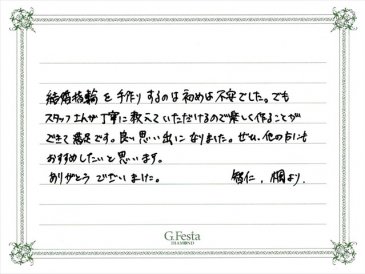 結婚指輪を手作りするのは初めは不安でした。でも
スタッフさんが丁寧に教えていただけるので楽しく作ることが
できて満足です。良い思い出になりました。ぜひ、他の方にも
おすすめしたいと思います。
ありがとうございました。 智仁、
より。
G.Festa
DIAMOND